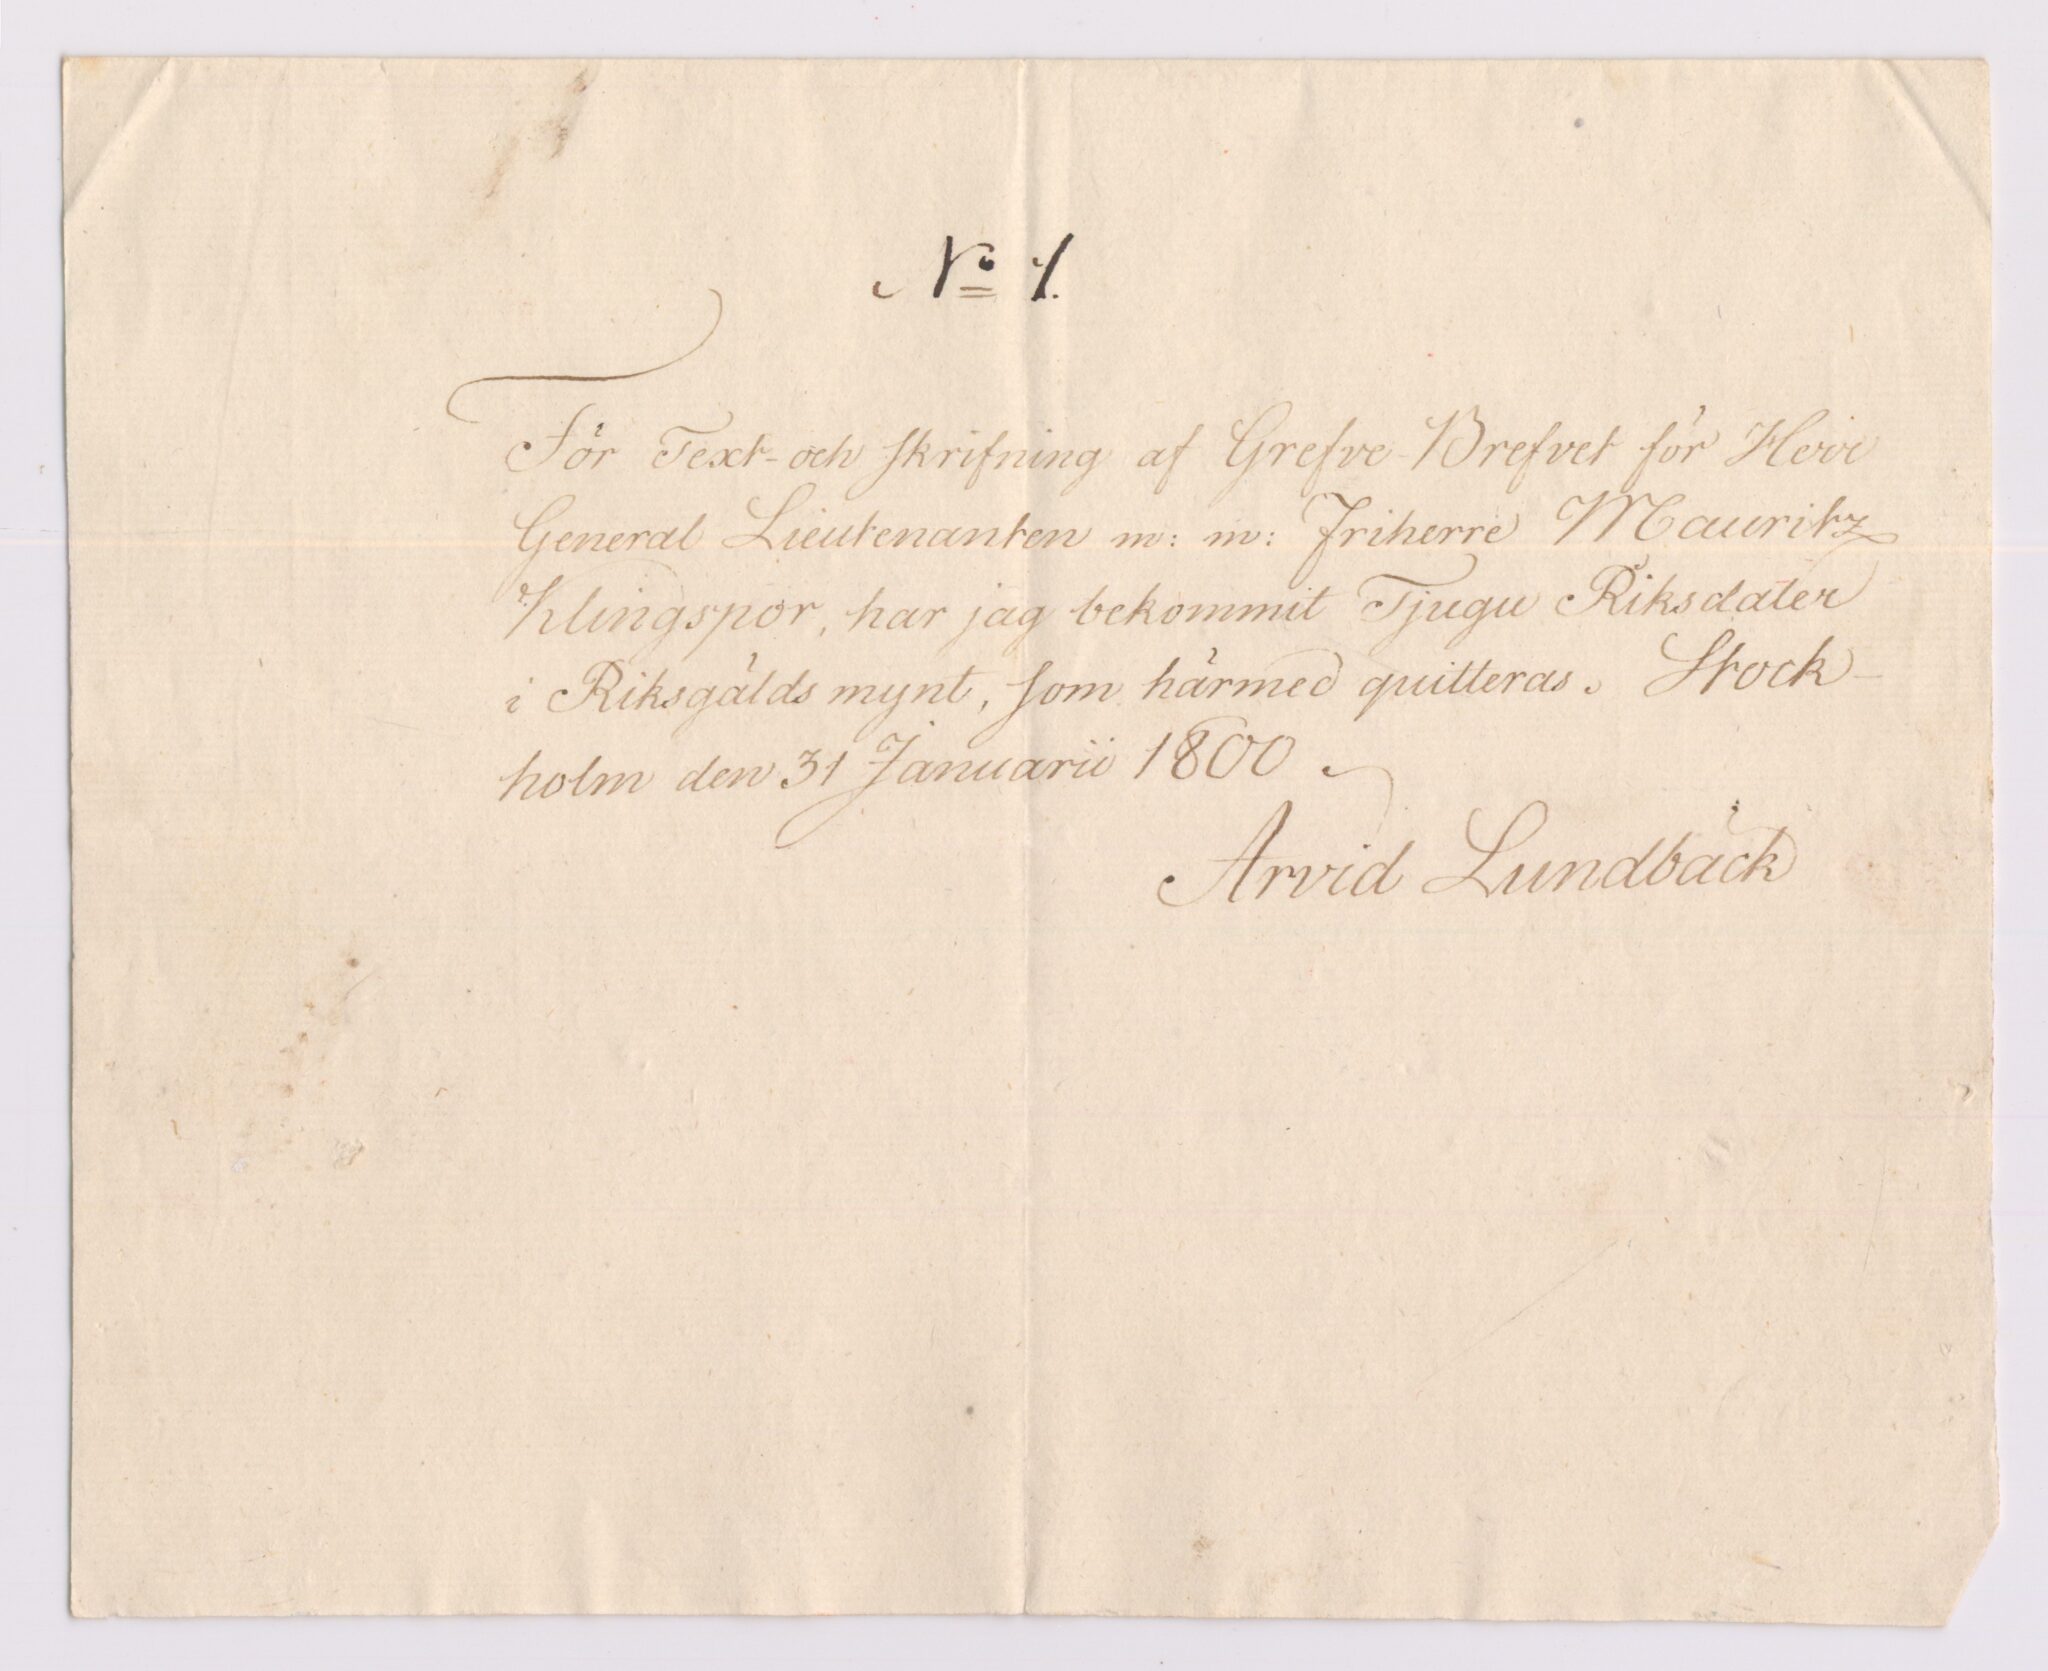 No 1.
För Text- och skrifning af Grefve-Brefvet för Herr
General Lieutenanten m: m: Friherre Mauritz
Klingspor, har jag bekommit Tjugu Riksdaler
i Riksgälds mynt, som härmed quitteras. Stock-
holm den 31 Januarii 1800
Arvid Lundbäck